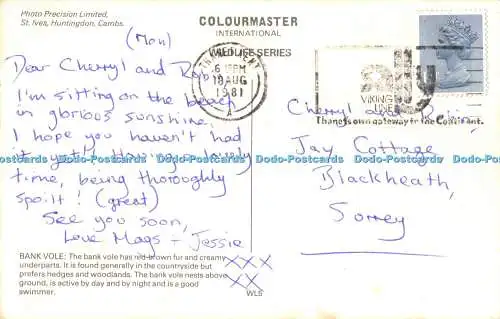 Photo Precision Limited,
St. Ives, Huntingdon, Cambs.
COLOURMASTER
INTERNATIONAL
WILDLIFE SERIES
(Mon)
Dear Cherryl and Robin
I'm sitting on the beach
in glorious sunshine!
I hope you haven't had
it yet! Having a lovely
time, being thoroughly
spoilt! (great)
See you soon,
Love Mags + Jessie
XXX
XX
18 AUG
1981
A
VIKING
LINE
Thanet's own gateway to the Continent.
Cherryl and Robin,
Jay Cottage
Blackheath,
Sorrey
BANK VOLE: The bank vole has red-brown fur and creamy
underparts. It is found generally in the countryside but
prefers hedges and woodlands. The bank vole nests above
ground, is active by day and by night and is a good
swimmer.
WL5
Dodo-Postcards Dodo-Postcards Dodo-Postcards Dodo-Postcards Dodo-Postcards Dodo-Postcards